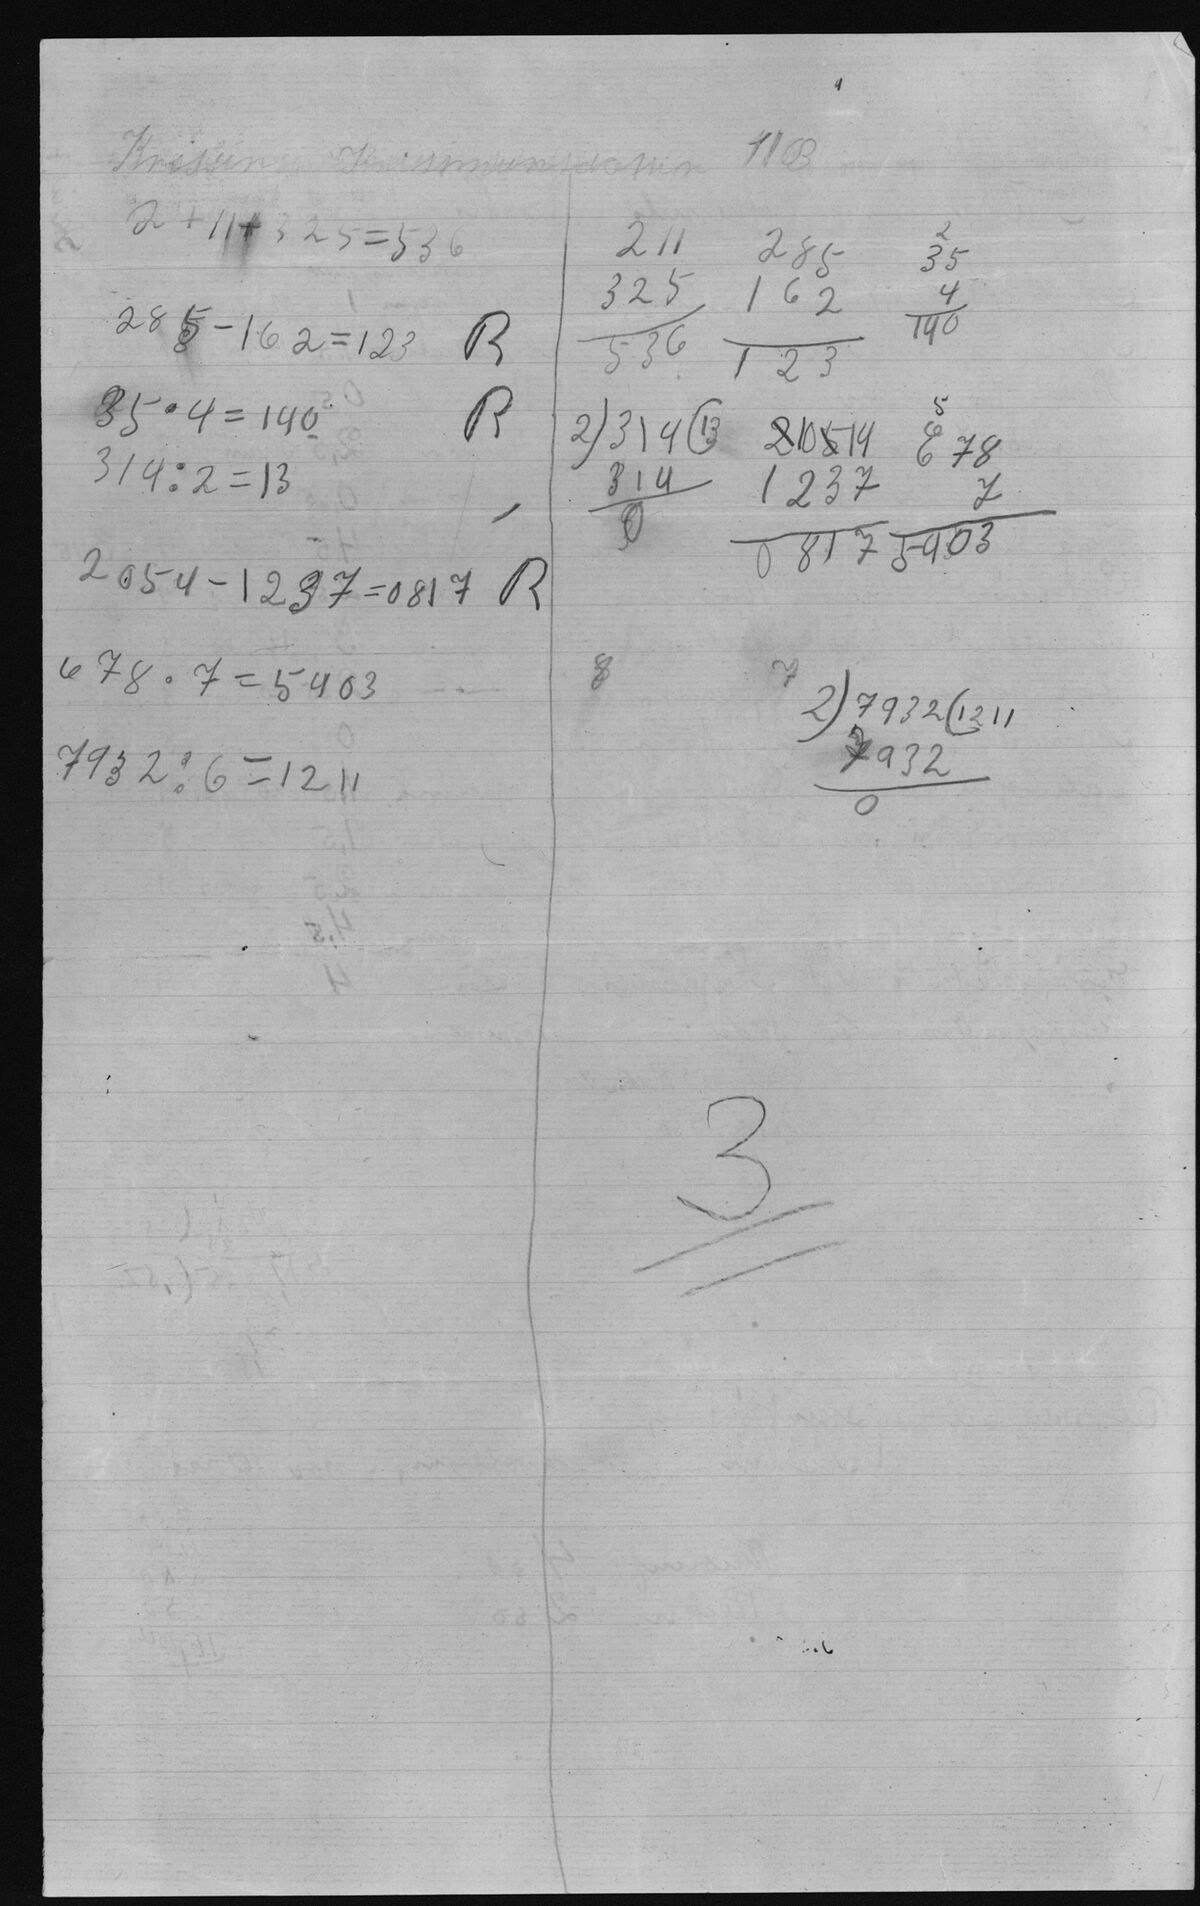 1103
2 + 11 + 325 = 536
285 - 162 = 123 R
35 · 4 = 140 R
314 : 2 = 13
2054 - 1237 = 0817 R
678 · 7 = 5403
7932 : 6 = 1211
211 285 2
325 162 35
536 123 4
140
2)314(13 210514 5
314 1237 678
0 0817 7
5403
8 7
2)7932(1211
7932
0
3